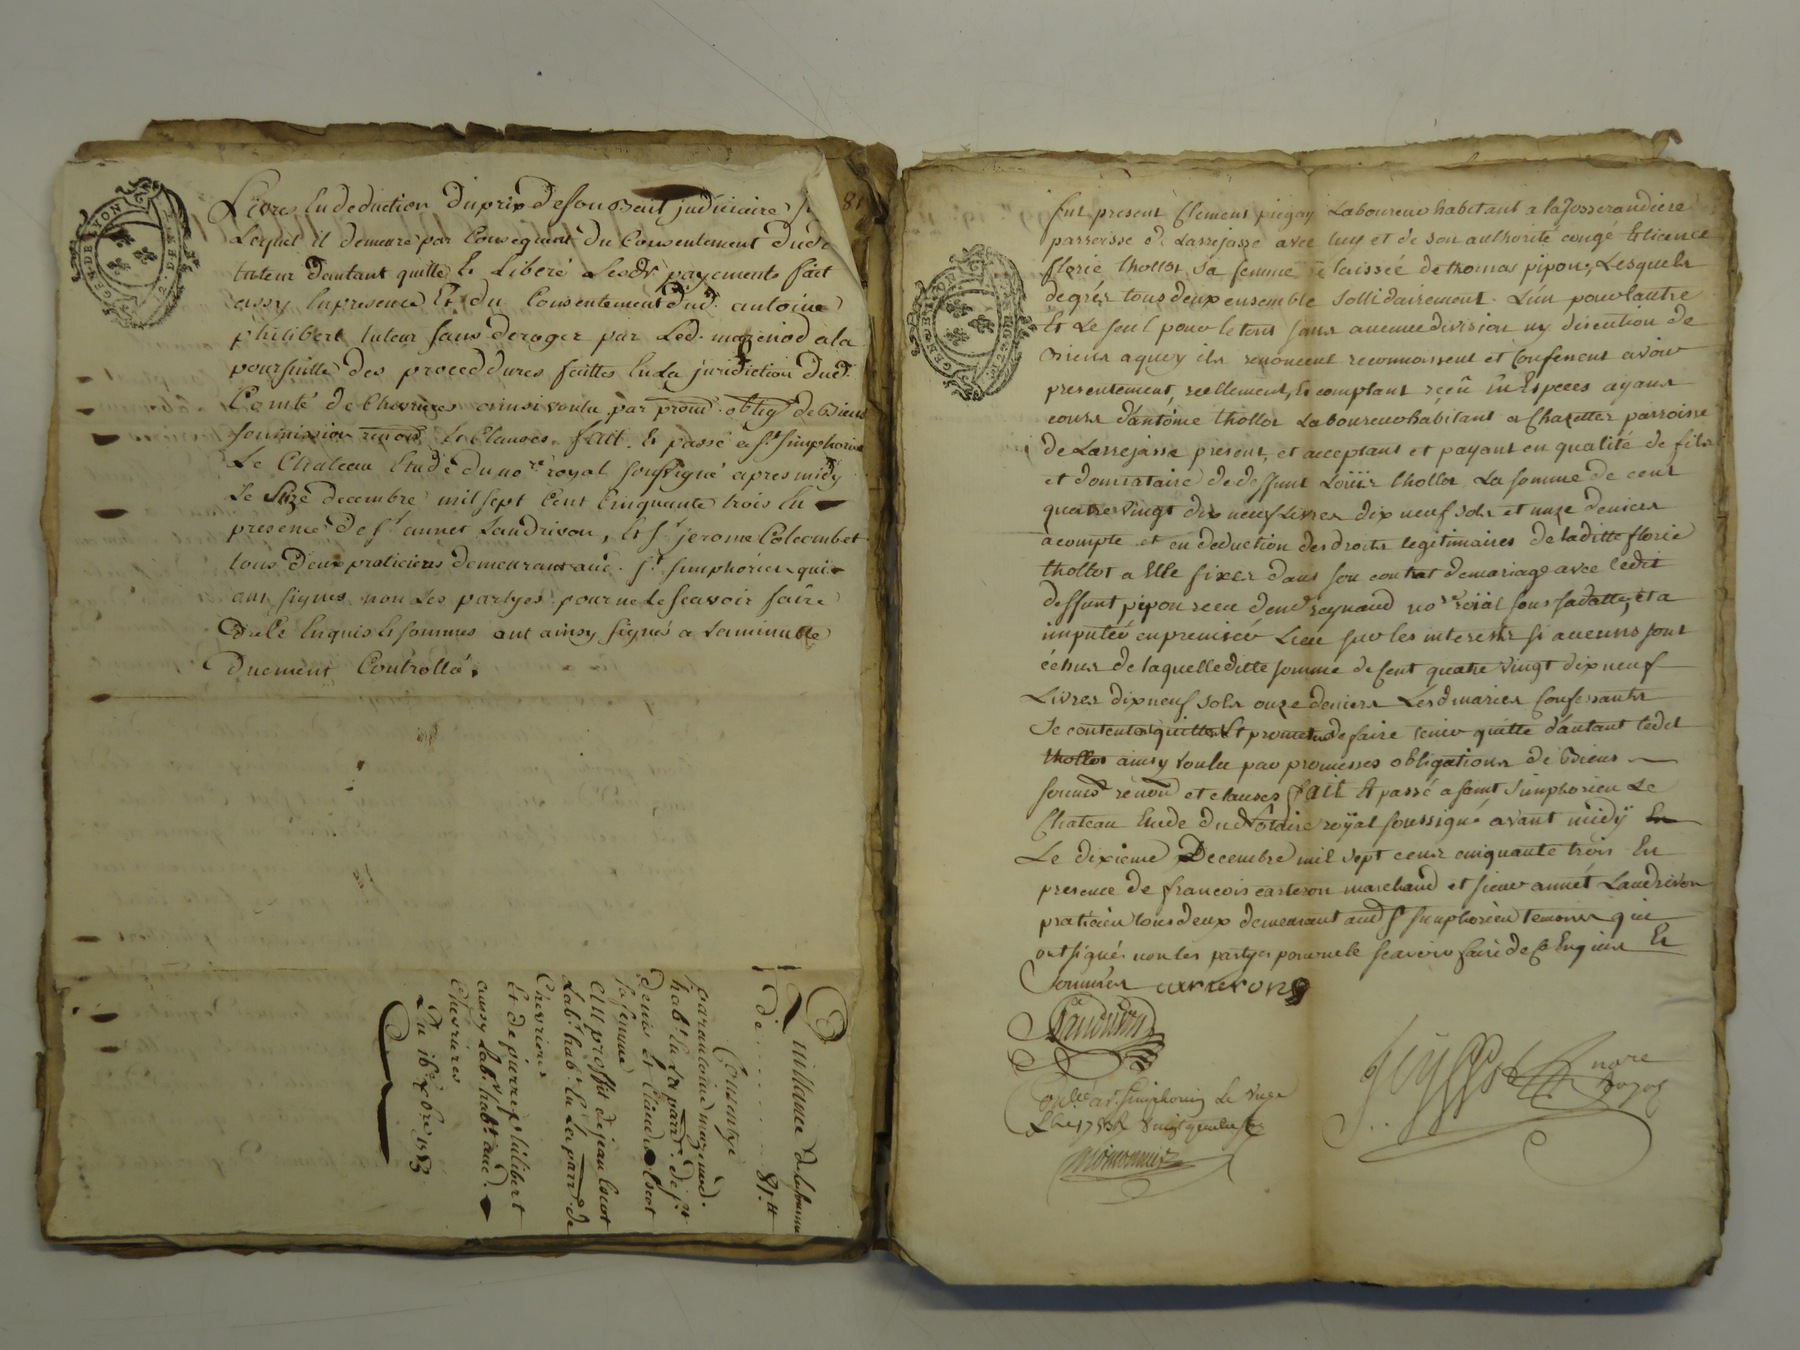 81
Livres en deduction du prix de son Beux judiciaire
Lequel il demeure par Consequant du Consentement dudt
tuteur d'autant quitte Et Liberé Lesdts payements fait
aissy en presence Et du Consentement dud. antoine
philibert tuteur sans deroger par Led. mazenod a la
poursuitte des proceddures faittes en La juridiction dud.
Comté de Chevrieres ainsi voulu par prom. oblig. de Biens
soumission renon. Et Clauses. fait & passé a St. Simphorien
Le Chateau Etude du nore royal soussigné apres midy
Le Seize decembre mil sept Cent Cinquante trois En
presence de Sr. annet Landrivon, Et Sr. jerome Colcombet
tous deux praticiens demeurans aud. St. Simphorien qui
ont signes non Les partyes pour ne Le scavoir faire
de ce Enquis Et sommés ont ainsy signés a La minutte
Duement Controllé.
Quittance de la somme
de . . . . . . 81 tt
Consentye
par antoine mazenod
habt. En La parr. de St
denis Et Clauda Escot
sa femme
au proffit de jean Escot
Labr. habt. En La parr. de
Chevrieres
Et de pierre philibert
aussy Labr. habt. aud.
Chevrieres
Du 16e Xbre 1753
GEN. DE LYON
fut present Clement piegay Laboureur habitant a la Josserandiere
parroisse de Larrejasse avec luy et de son authorité congé Et licence
florie thollot sa femme delaissée de thomas pipon, Lesquels
de gréz tous deux ensemble sollidairement L'un pour l'autre
Et Le seul pour le tout sans aucune division ny discution de
Biens a quoy ils renoncent reconnoissent et Confessent avoir
presentement, reellement, Et comptant reçeû En Especes ayans
cours d'antoine thollot Laboureur habitant a Chazettes parroisse
de Larrejasse present, et acceptant et payant en qualité de fils
et donnataire de deffunt Loüis thollot La somme de cent
quatre Vingt dix neuf Livres dix neuf sols et onze deniers
acompte et en deduction des droits legitimaires de laditte florie
thollot a Elle fixes dans son contrat de mariage avec ledit
deffunt pipon receu de me reynaud nore roïal sous sa datte, et a
imputer en premier Lieu sur les interests si aucuns sont
échus de laquelle ditte somme de Cent quatre Vingt dix neuf
Livres dix neuf sols onze deniers Lesd mariés Confessants
Se contentent quittent Et promettent de faire tenir quitte d'autant ledit
thollot ainsy Voulu par promesses obligations de Biens
soumis. renon. et clauses fait Et passé a saint Simphorien Le
Chateau Etude du Notaire royal soussigné avant midÿ
Le dixieme Decembre mil sept cent cinquante trois En
presence de francois carteron marchand et sieur annet Landrivon
praticien tous deux demeurant aud St Simphorien temoins qui
ont signés non les partyes pour ne le scavoir faire de ce Enquis Et
Sommés carteron
Landrivon
nore
royal
Conlé a St. Simphorien Le